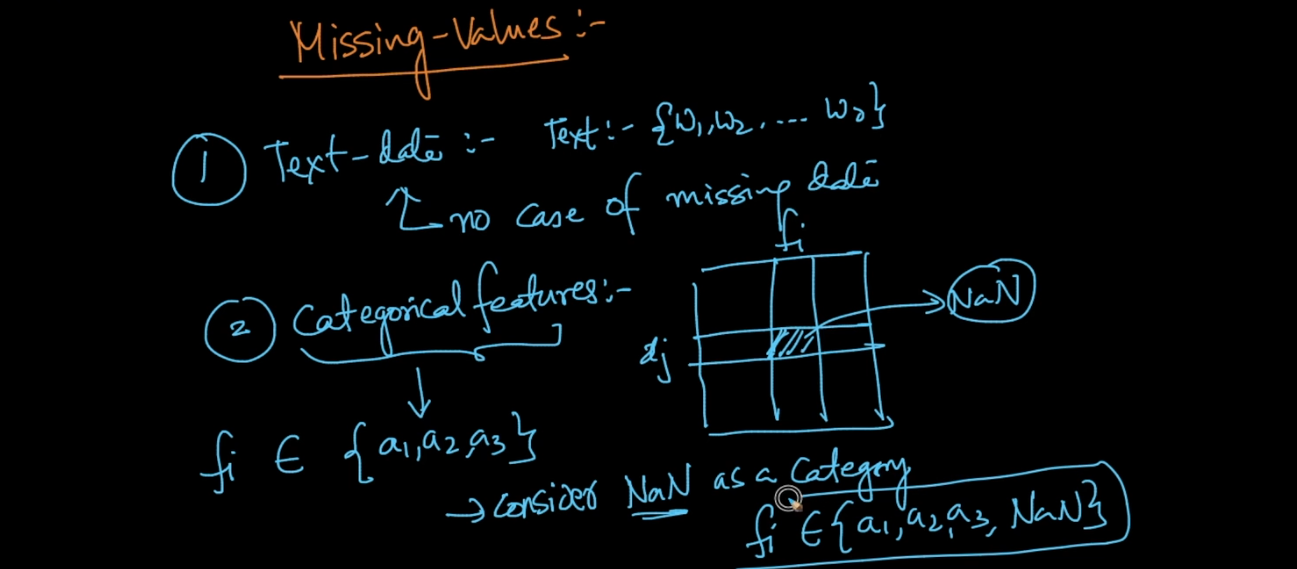 Missing-Values :-
1 Text-data :- Text :- {w₁, w₂, .... wₔ}
no case of missing data
fi
2 Categorical features :-
NaN
dj
fi ∈ {a₁, a₂, a₃}
→ consider NaN as a category
fi ∈ {a₁, a₂, a₃, NaN}